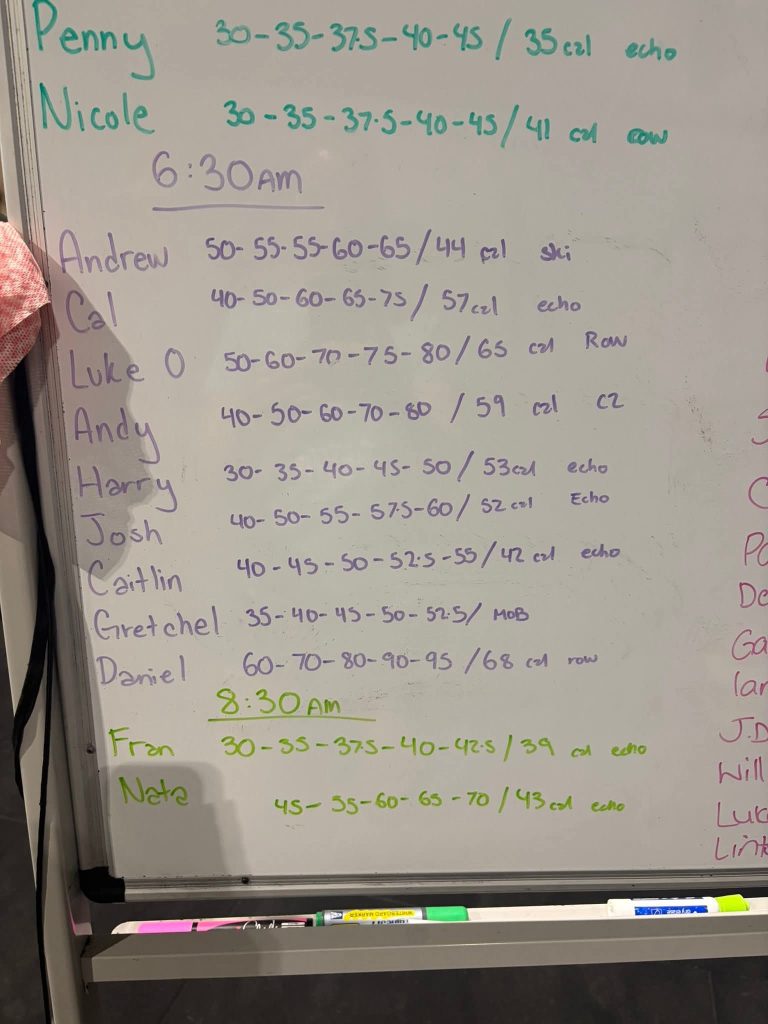 Penny 30-35-37.5-40-45 / 35 cal echo
Nicole 30-35-37.5-40-45/ 41 cal row
6:30AM
Andrew 50-55-55-60-65/44 cal ski
Cal 40-50-60-65-75/ 57 cal echo
Luke O 50-60-70-75-80/65 cal Row
Andy 40-50-60-70-80 / 59 cal C2
Harry 30-35-40-45-50/53 cal echo
Josh 40-50-55-57.5-60/52 cal Echo
Caitlin 40-45-50-52.5-55/42 cal echo
Gretchel 35-40-45-50-52.5/ MOB
Daniel 60-70-80-90-95 /68 cal row
8:30AM
Fran 30-35-37.5-40-42.5/39 cal echo
Nata 45-55-60-65-70/43 cal echo
De
Ga
J.D
Will
Luk
WHITEBOARD MARKER